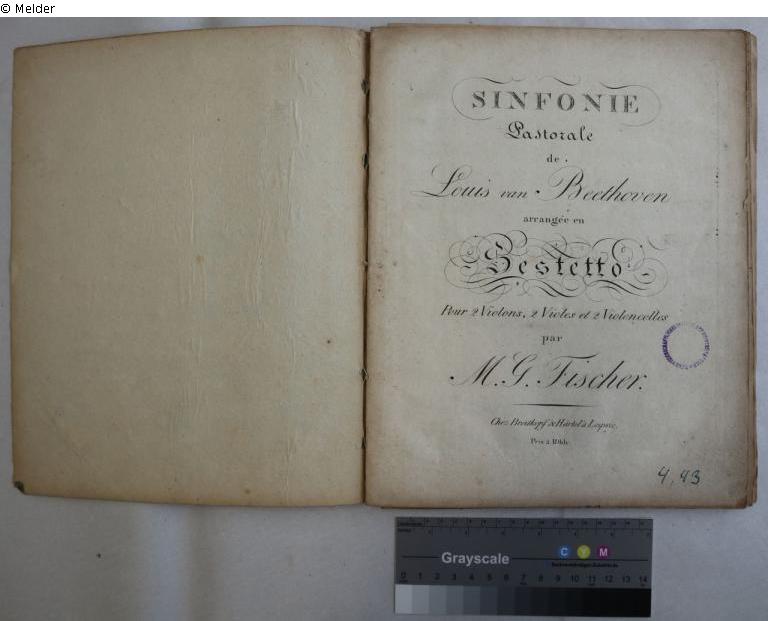 © Melder
SINFONIE
Pastorale
de
Louis van Beethoven
arrangée en
Sestetto
Pour 2 Violons, 2 Violes et 2 Violoncelles
par
M. G. Fischer.
Chez Breitkopf & Härtel à Leipsic.
Prix 2 Rthlr.
4,93
Grayscale
C Y M
0 1 2 3 4 5 6 7 8 9 10 11 12 13 14